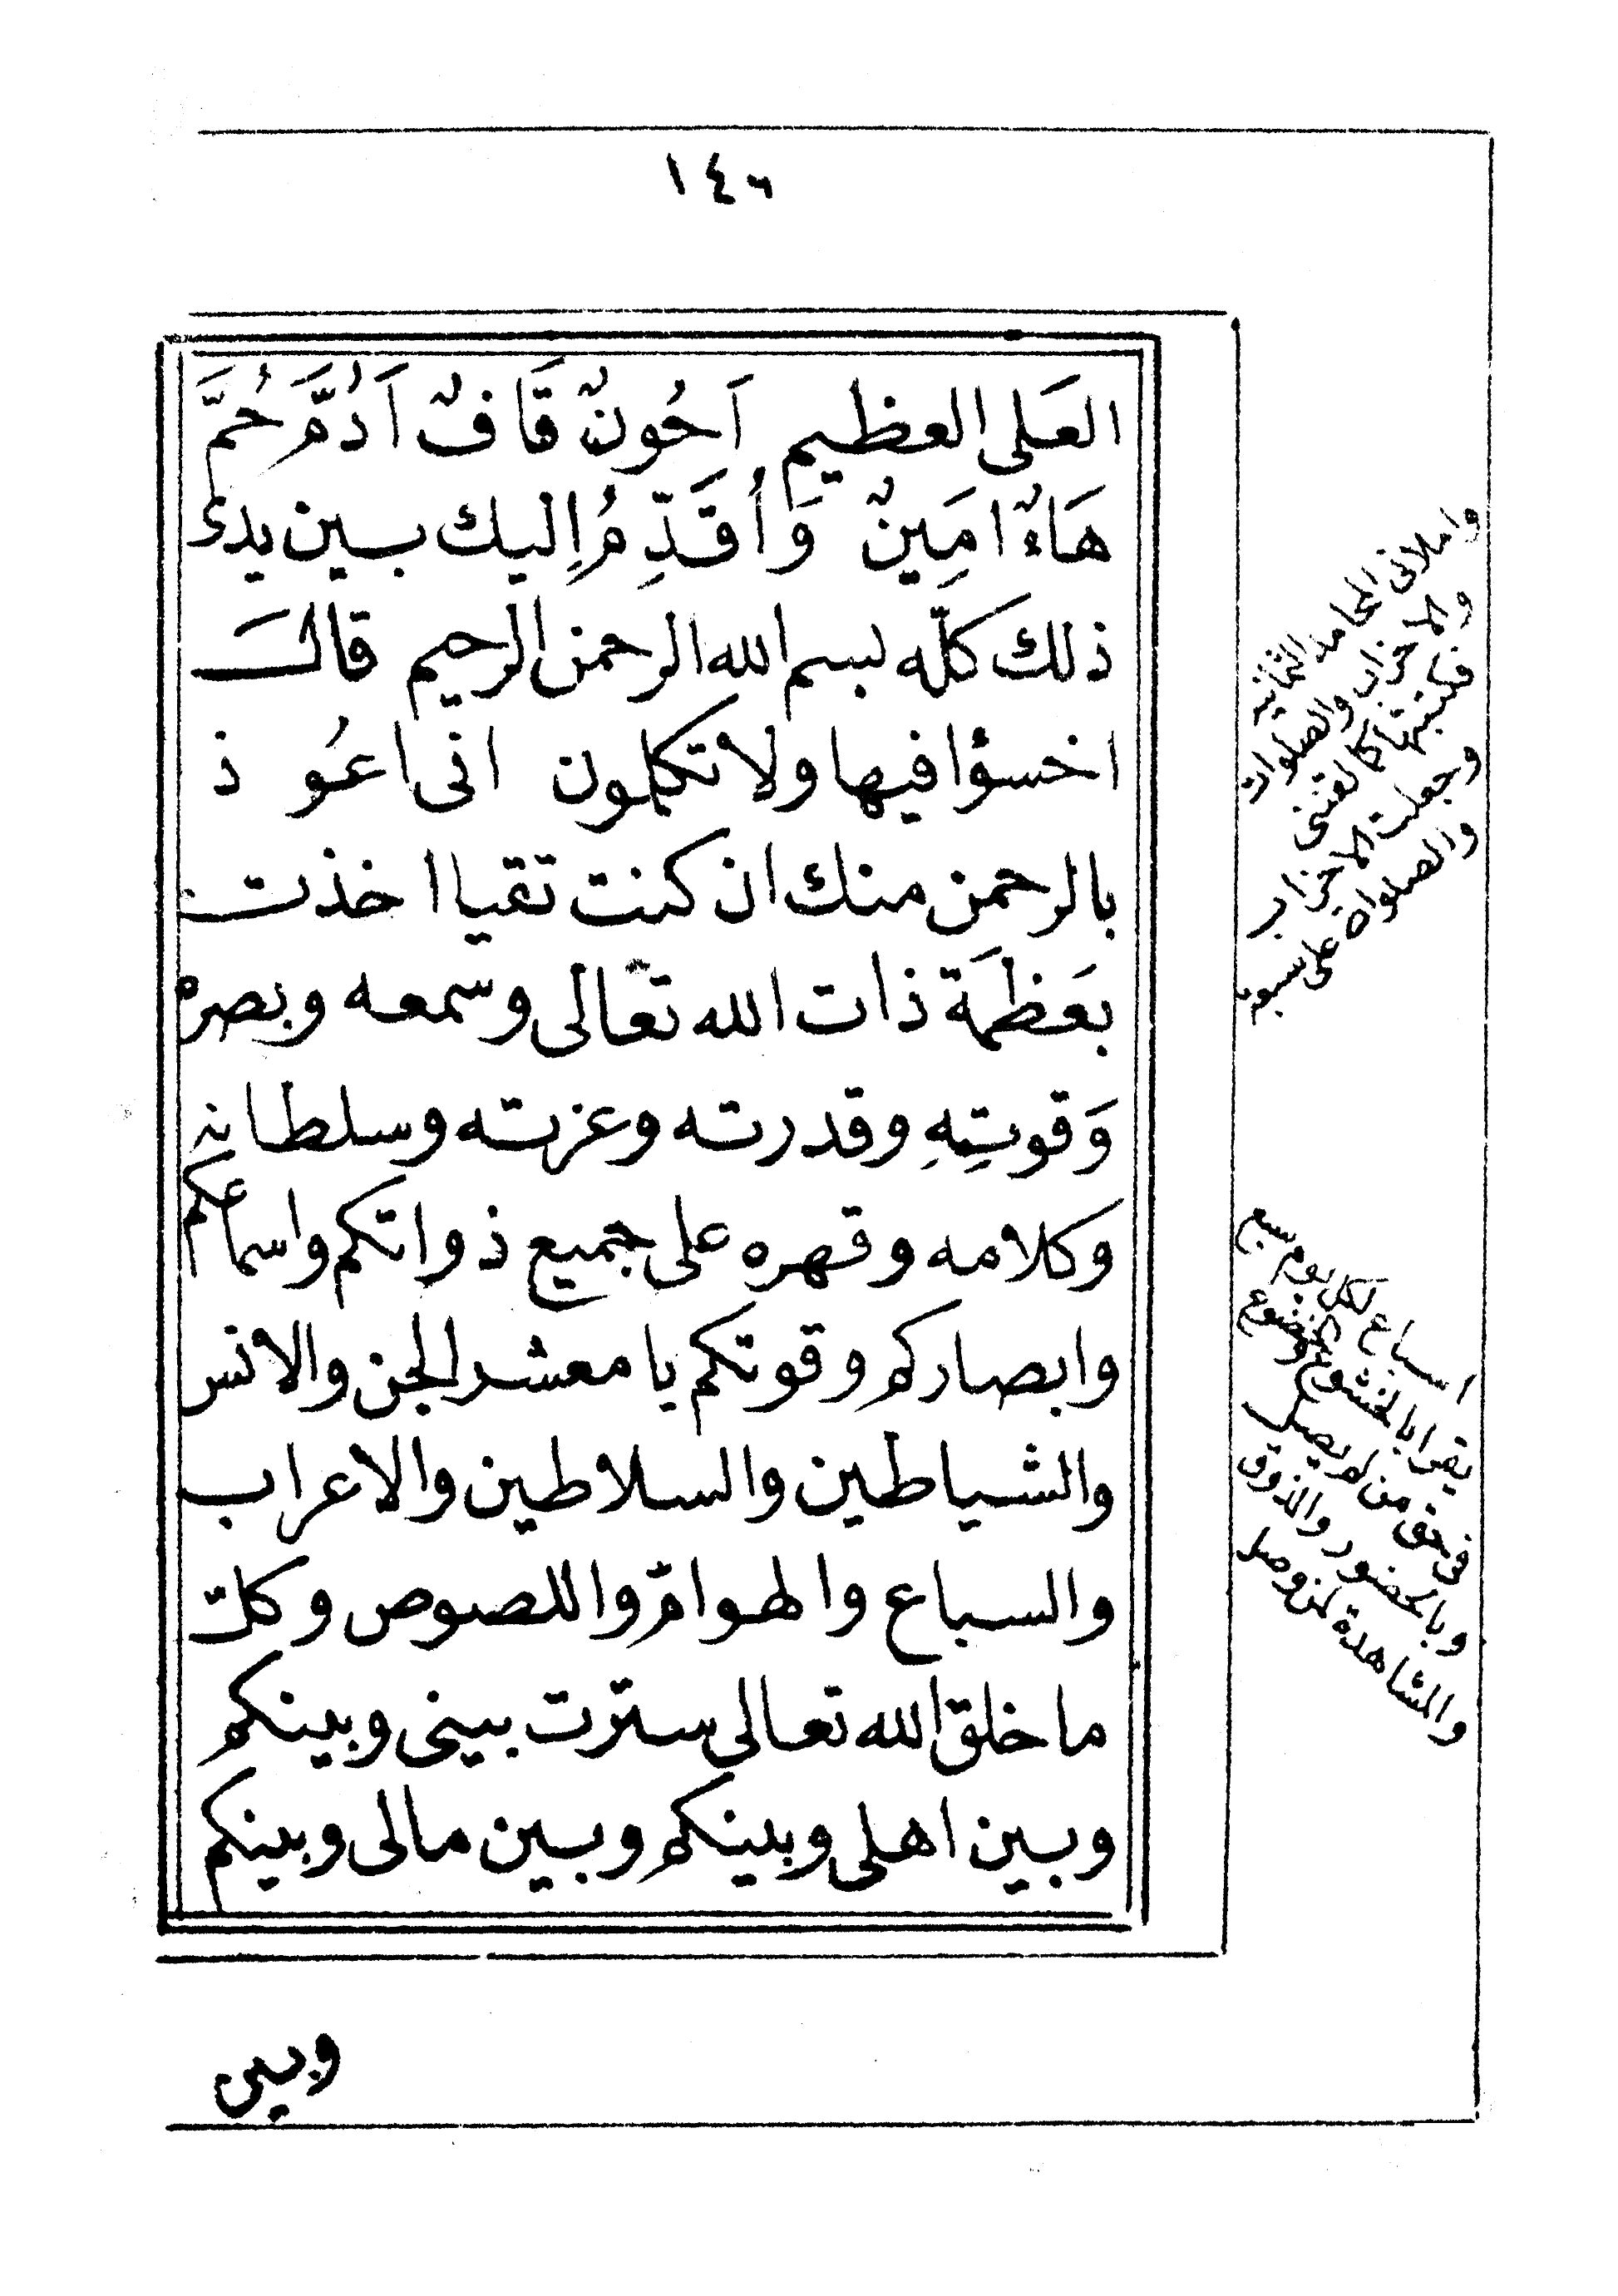 ١٤٦
العَلى العظيم اَحُونٌ قَافٌ اَدُمَّ حُمَّ
هَاءٌ امَينٌ وَاُقَدِّمُ اِليك بين يدى
ذلك كلّه بسم الله الرحمن الرحيم قالَ
اخسؤا فيها ولا تكلمون انى اعُوذ
بالرحمن منك ان كنت تقيا اخذت
بعَظمَة ذات الله تعالى وسمعه وبصره
وَقوتِهِ وقدرته وعزته وسلطانه
وكلامه وقهره على جميع ذواتكم واسماعكم
وابصاركم وقوتكم يا معشر الجن والانس
والشياطين والسلاطين والاعراب
والسباع والهوامّ واللصوص وكلّ
ما خلق الله تعالى سترت بينى وبينكم
وبين اهلى وبينكم وبين مالى وبينكم
واملانى المحامد الثمانية
والاحزاب والصلوات
فكتبتها كما لقننى
وجعلت الاحزاب
والصلواة على سبوع
اسباع لكل يوم سبع
يقرا بالخشوع والخضوع
فى حق من لم يصل
وبالحضور والذوق
والمشاهدة لمن وصل
وبين